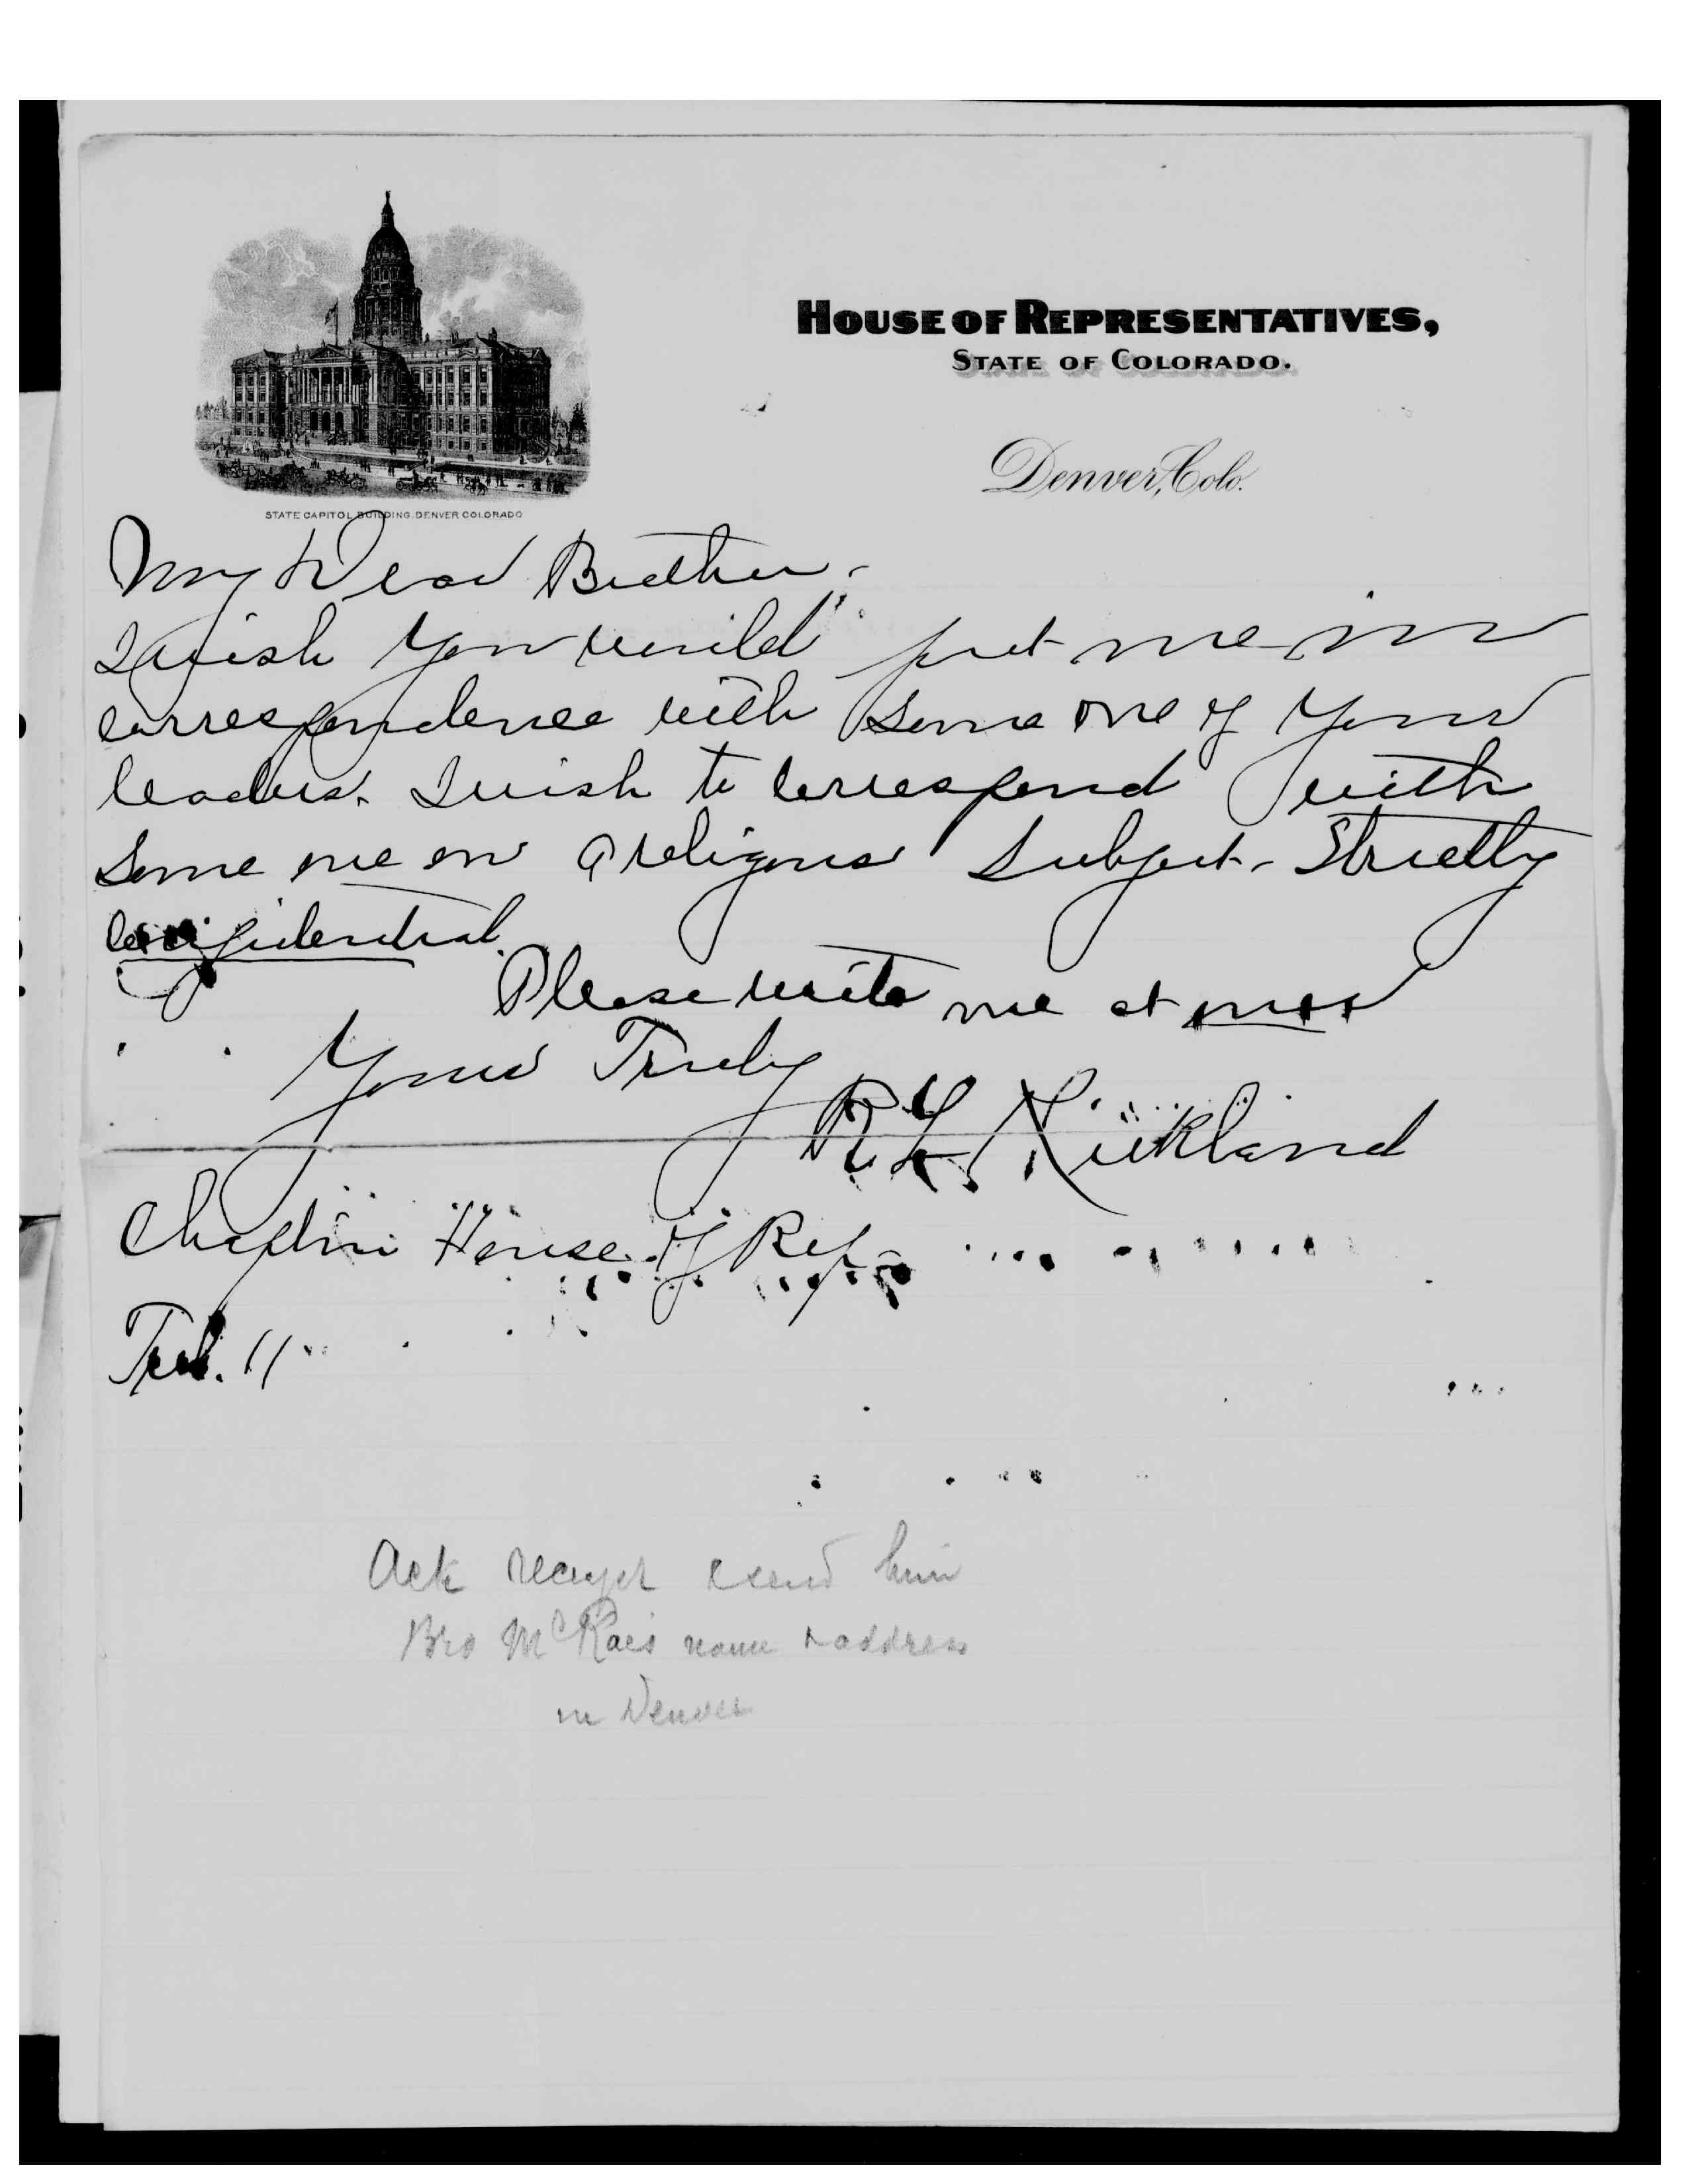 HOUSE OF REPRESENTATIVES,
STATE OF COLORADO.
Denver, Colo.
STATE CAPITOL BUILDING, DENVER COLORADO
My Dear Brother,
I wish you would put me in
correspondence with some one of your
leaders. I wish to correspond with
some one on a religious subject - Strictly
confidential.
Please write me at
Yours Truly
Kirkland
Chaplin House of Rep
Feb. 11
Ack receipt send him
Bro McRae's name & address
in Denver